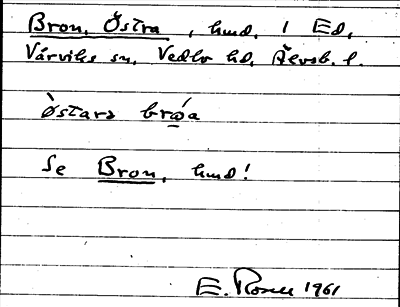 Bron, Östra, hmd. i Ed,
Vårviks sn, Vedbo hd, Älvsb. l.
östara bróa
Se Bron, hmd!
E. Rosell 1961